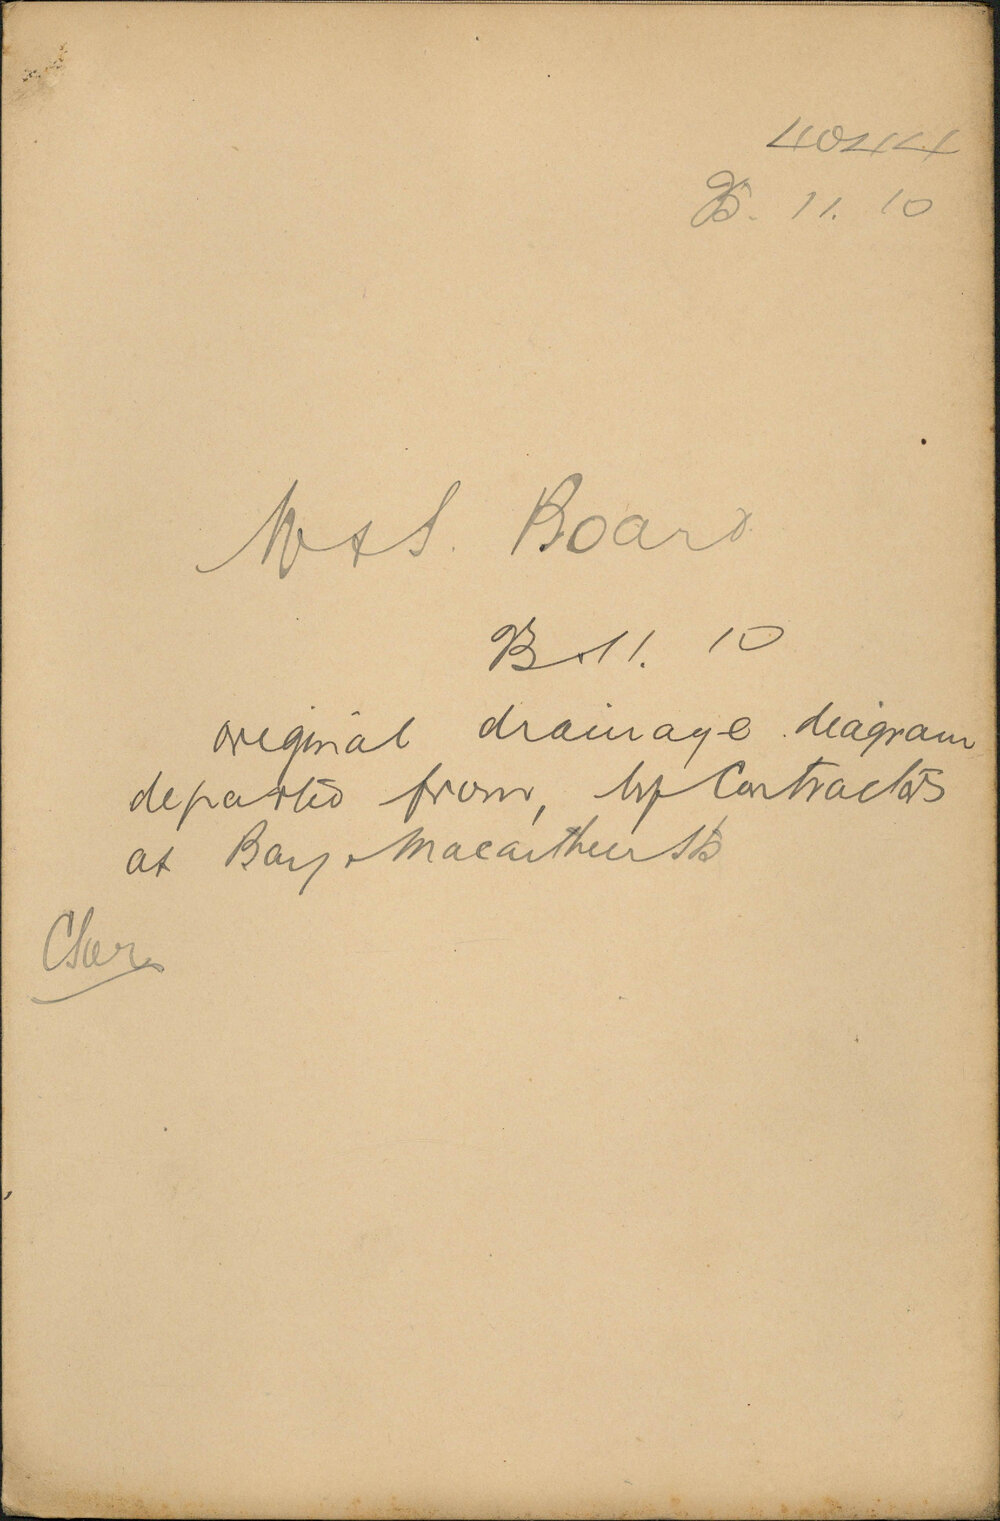 4044
11. 10
W & S. Board
11. 10
original drainage diagram
departed from, by Contractors
at Bay & Macarthur Sts